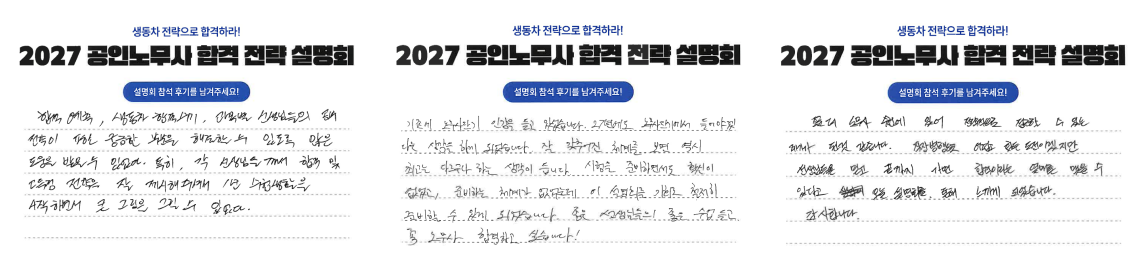 생동차 전략으로 합격하라!
2027 공인노무사 합격 전략 설명회
설명회 참석 후기를 남겨주세요!
합격 예측, 생동차 합격수기, 과목별 선생님들의 합격
전략이 저의 궁금한 부분을 해소할 수 있도록 많은
도움을 받을 수 있었다. 특히, 각 선생님들 께서 합격 및
고득점 전략을 잘 제시해주셔서 1년 수험생활을
시작하면서 큰 그림을 그릴 수 있었다.
생동차 전략으로 합격하라!
2027 공인노무사 합격 전략 설명회
설명회 참석 후기를 남겨주세요!
기존에 노무사가 인강을 듣고 있었습니다. 오프라인에도 노무사에게서 들어야겠
다는 생각을 하게 되었습니다. 잘 갖추어진 체계를 보면 역시
최고는 다르구나 하는 생각이 듭니다. 시험을 준비하면서도 확신이
없었고, 준비하는 체계가 없었는데 이 설명회를 기회로 철저히
준비할 수 있게 되었습니다. 좋은 선생님들의 좋은 수업 듣고
꼭 노무사 합격하고 싶습니다!
생동차 전략으로 합격하라!
2027 공인노무사 합격 전략 설명회
설명회 참석 후기를 남겨주세요!
있어 전반적으로 점검할 수 있는
계기가 된것 같습니다.
선생님들을 믿고 끝까지 가면 합격이라는 열매를 맺을 수
있다고 오늘 설명회를 통해 느끼게 되었습니다.
감사합니다.